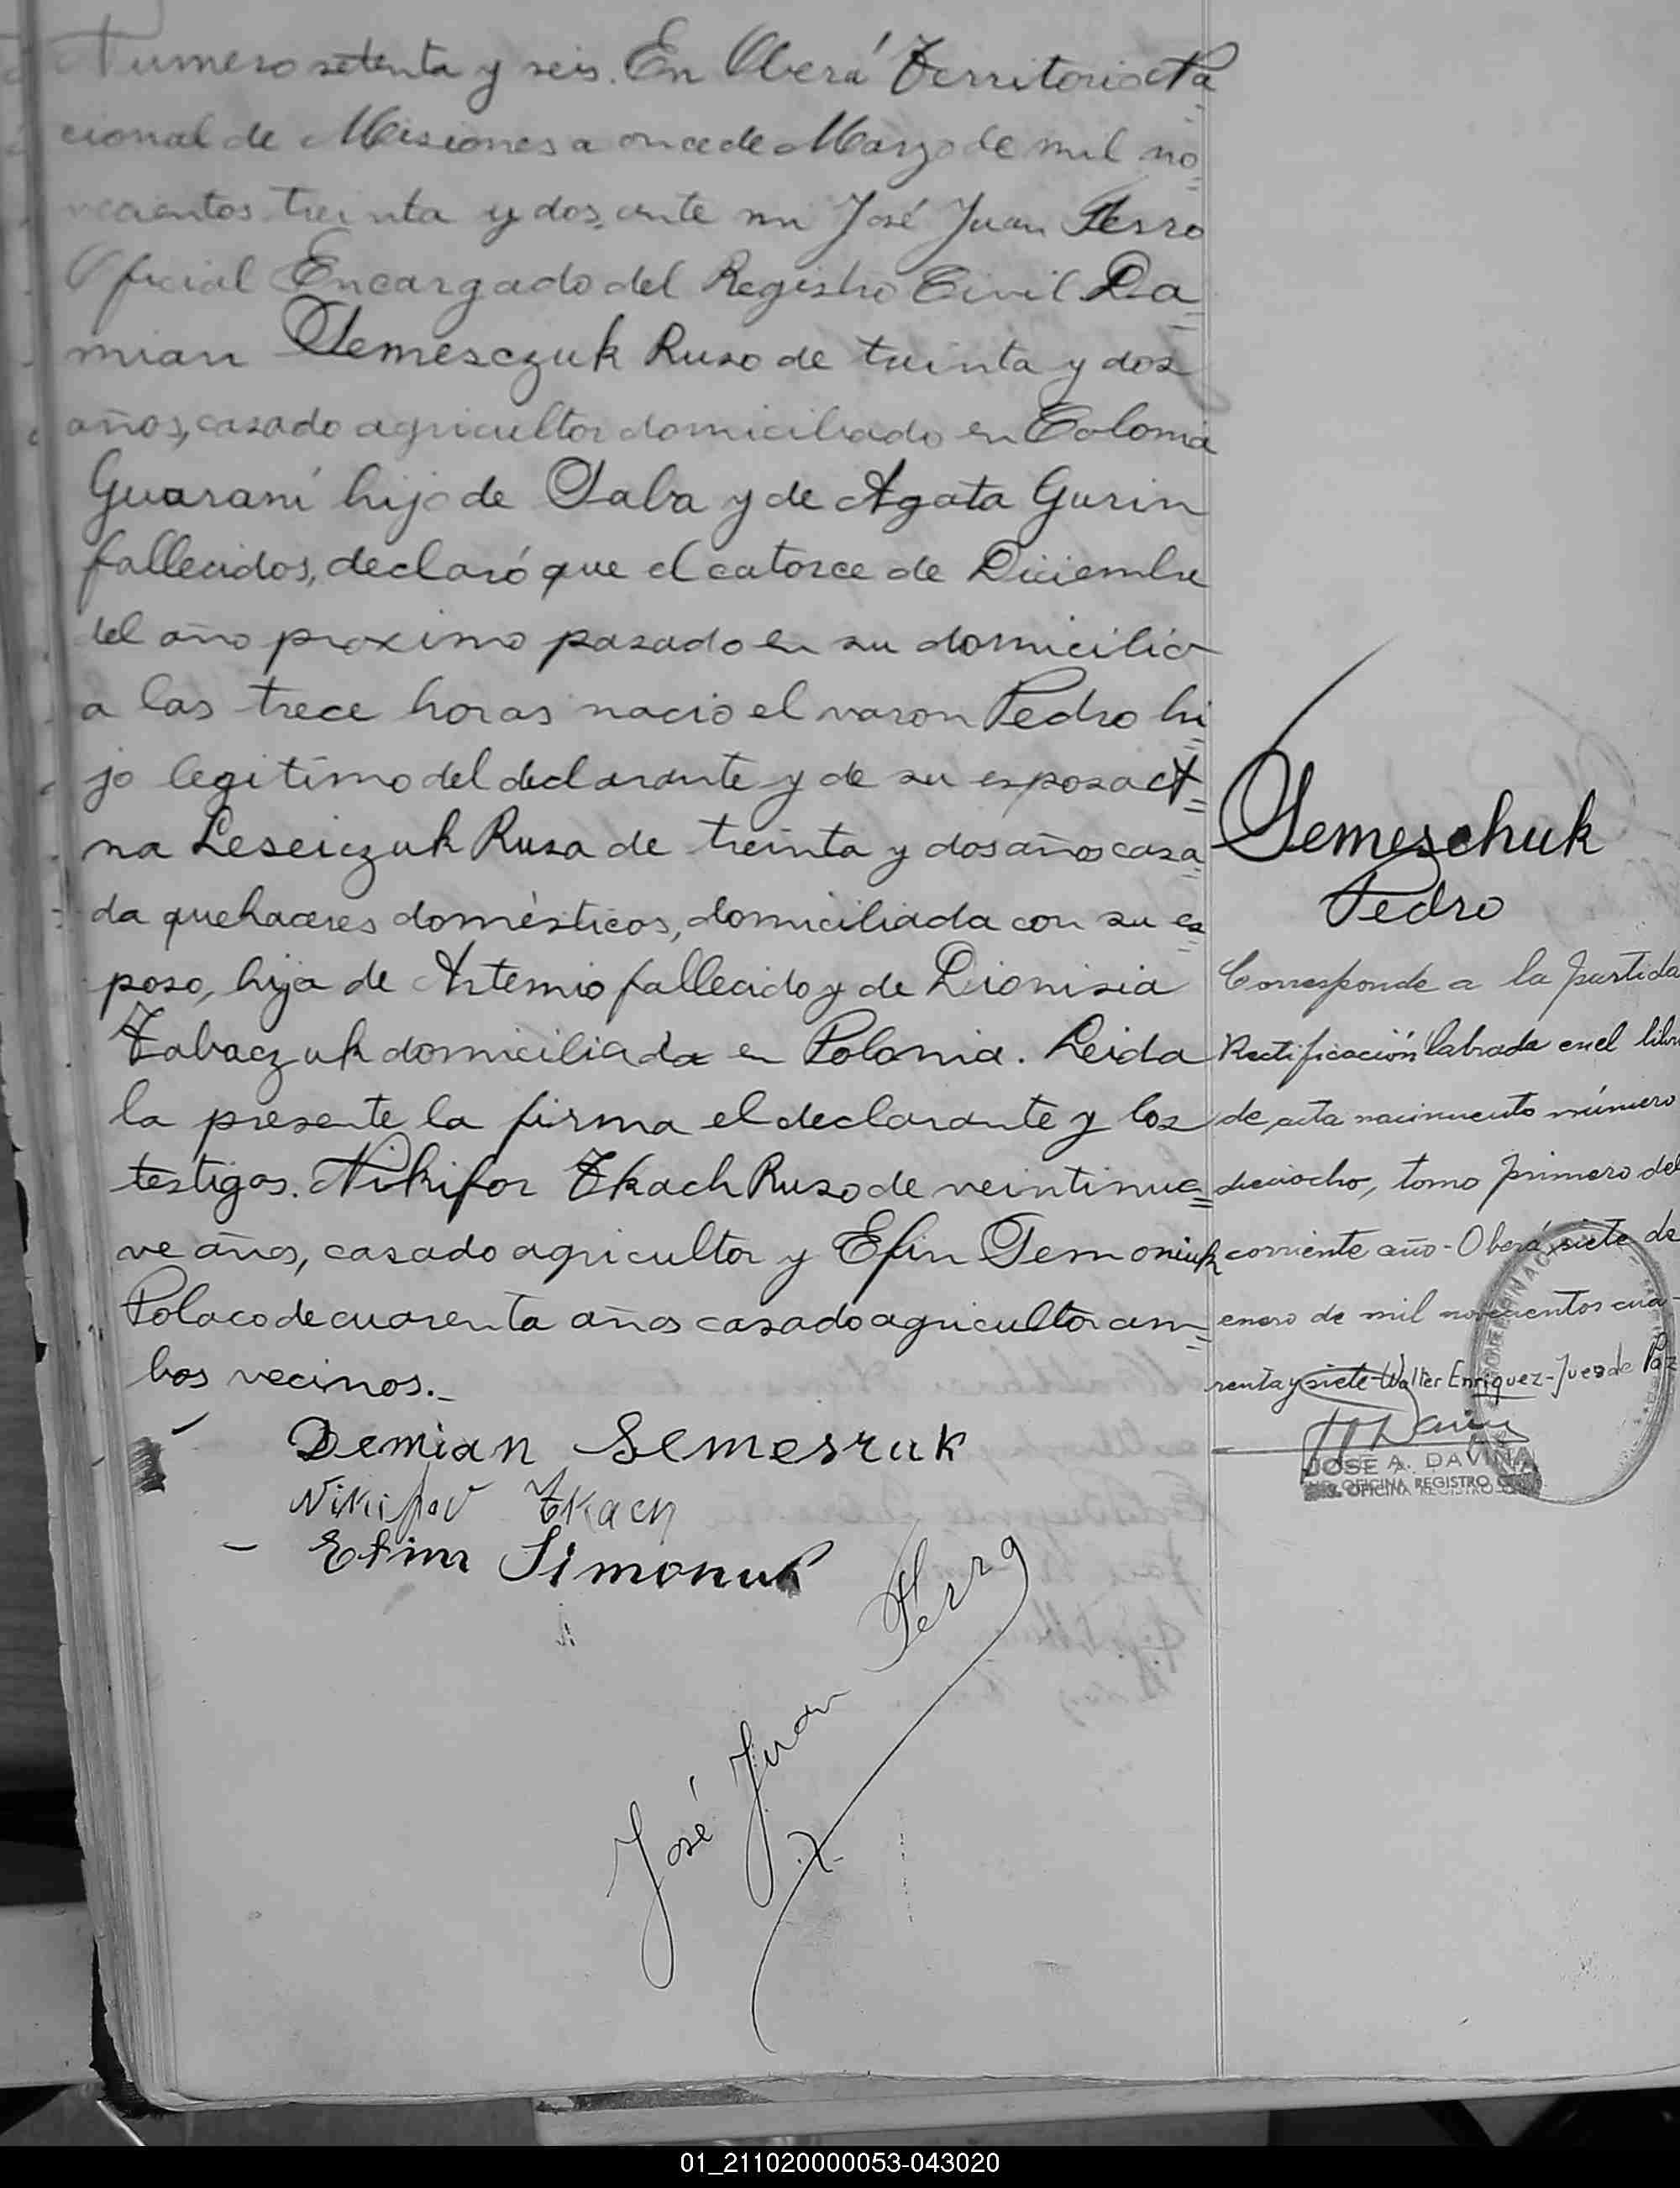 Numero setenta y seis. En Oberá Territorio Na
cional de Misiones a once de Marzo de mil no
vecientos treinta y dos, ante mi José Juan Ferro
Oficial Encargado del Registro Civil Da
mian Semesczuk Ruso de treinta y dos
años, casado agricultor domiciliado en Colonia
Guaraní hijo de Saba y de Agata Gurin
fallecidos, declaró que el catorce de Diciembre
del año proximo pasado en su domicilio
a las trece horas nacio el varon Pedro hi
jo legitimo del declarante y de su esposa A
na Leseiczuk Rusa de treinta y dos años casa
da quehaceres domésticos, domiciliada con su es
poso, hija de Artemio fallecido y de Dionisia
Tabaczuk domiciliada en Polonia. Leida
la presente la firma el declarante y los
testigos. Nikifor Tkach Ruso de veintinue
ve años, casado agricultor y Efin Semoniuk
Polaco de cuarenta años casado agricultor am
bos vecinos._
Demian Semesruk
Nikifor Tkach
Efim Simonuk
José Juan Ferro
Semeschuk
Pedro
Corresponde a la partida
Rectificación labrada en el libro
de acta nacimiento número
dieciocho, tomo primero del
corriente año - Oberá, siete de
enero de mil novecientos cua-
renta y siete - Walter Enriquez - Juez de Paz
JOSE A. DAVIÑA
OFICINA REGISTRO
01_211020000053-043020